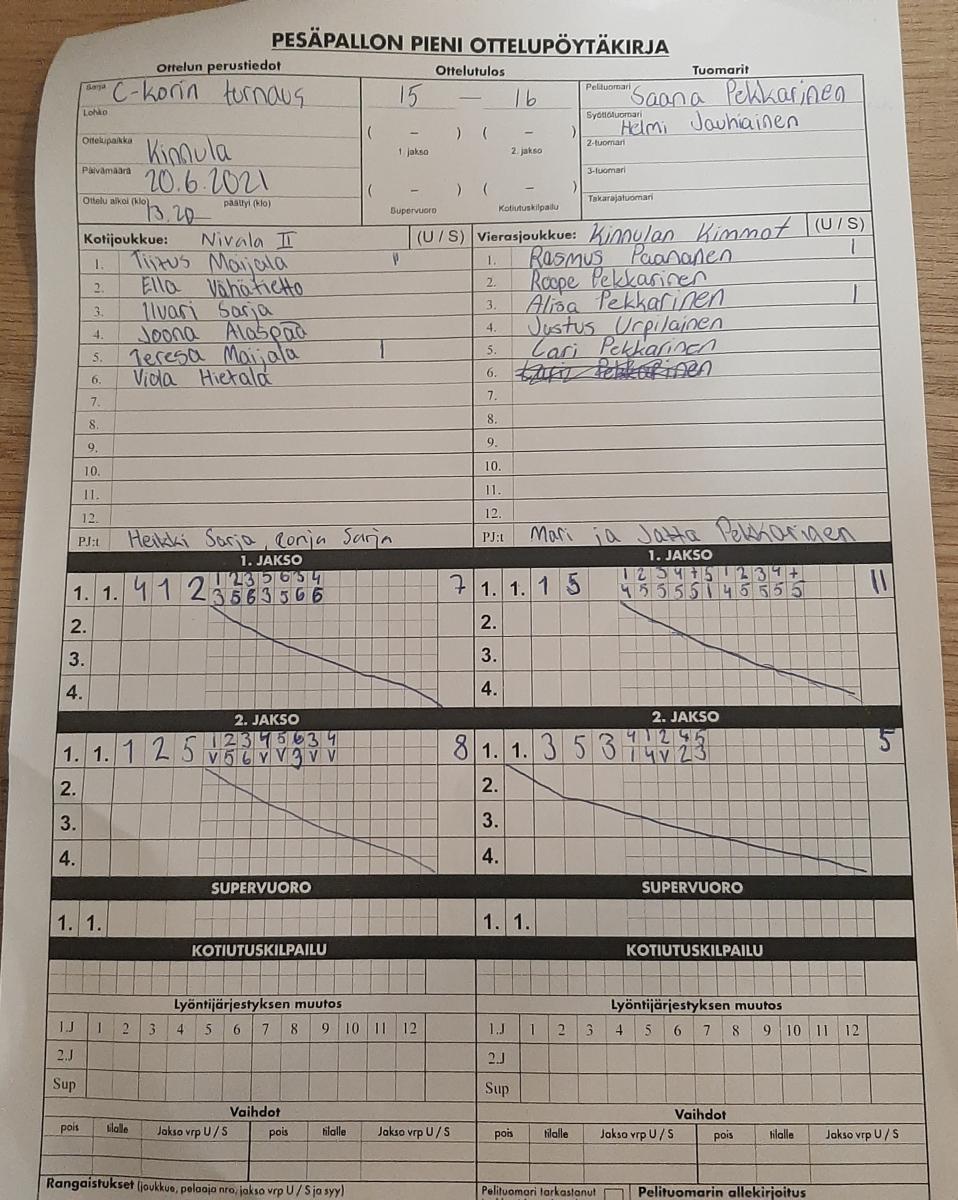 PESÄPALLON PIENI OTTELUPÖYTÄKIRJA
Ottelun perustiedot Ottelutulos Tuomarit
Sarja C-korin turnaus 15 — 16 Pelituomari Saana Pekkarinen
Lohko Syöttötuomari Helmi Jauhiainen
( – ) ( – )
Ottelupaikka Kinnula 1. jakso 2. jakso 2-tuomari
Päivämäärä 20.6.2021 3-tuomari
( – ) ( – )
Ottelu alkoi (klo) 13.20 päättyi (klo) Supervuoro Kotiutuskilpailu Takarajatuomari
Kotijoukkue: Nivala II (U / S) Vierasjoukkue: Kinnulan Kimmot (U / S)
1. Tiitus Maijala II 1. Rasmus Paananen I
2. Ella Vähätietto 2. Roope Pekkarinen
3. Ilvari Sarja 3. Alisa Pekkarinen I
4. Joona Alaspää 4. Justus Urpilainen
5. Teresa Maijala I 5. Lari Pekkarinen
6. Viola Hietala 6.
7. 7.
8. 8.
9. 9.
10. 10.
11. 11.
12. 12.
PJ:t Heikki Sarja, Ronja Sarja PJ:t Mari ja Jatta Pekkarinen
1. JAKSO 1. JAKSO
1 2 3 5 6 3 4 1 2 3 4 + 5 1 2 3 4 +
1. 1. 4 1 2 3 5 6 3 5 6 6 7 1. 1. 1 5 4 5 5 5 5 1 4 5 5 5 5 11
2. 2.
3. 3.
4. 4.
2. JAKSO 2. JAKSO
1 2 3 4 5 6 3 4 4 1 2 4 5
1. 1. 1 2 5 V 5 6 V V 3 V V 8 1. 1. 3 5 3 1 4 V 2 3 5
2. 2.
3. 3.
4. 4.
SUPERVUORO SUPERVUORO
1. 1. 1. 1.
KOTIUTUSKILPAILU KOTIUTUSKILPAILU
Lyöntijärjestyksen muutos Lyöntijärjestyksen muutos
1.J 1 2 3 4 5 6 7 8 9 10 11 12 1.J 1 2 3 4 5 6 7 8 9 10 11 12
2.J 2.J
Sup Sup
Vaihdot Vaihdot
pois tilalle Jakso vrp U / S pois tilalle Jakso vrp U / S pois tilalle Jakso vrp U / S pois tilalle Jakso vrp U / S
Rangaistukset (joukkue, pelaaja nro, jakso vrp U / S ja syy) Pelituomari tarkastanut Pelituomarin allekirjoitus